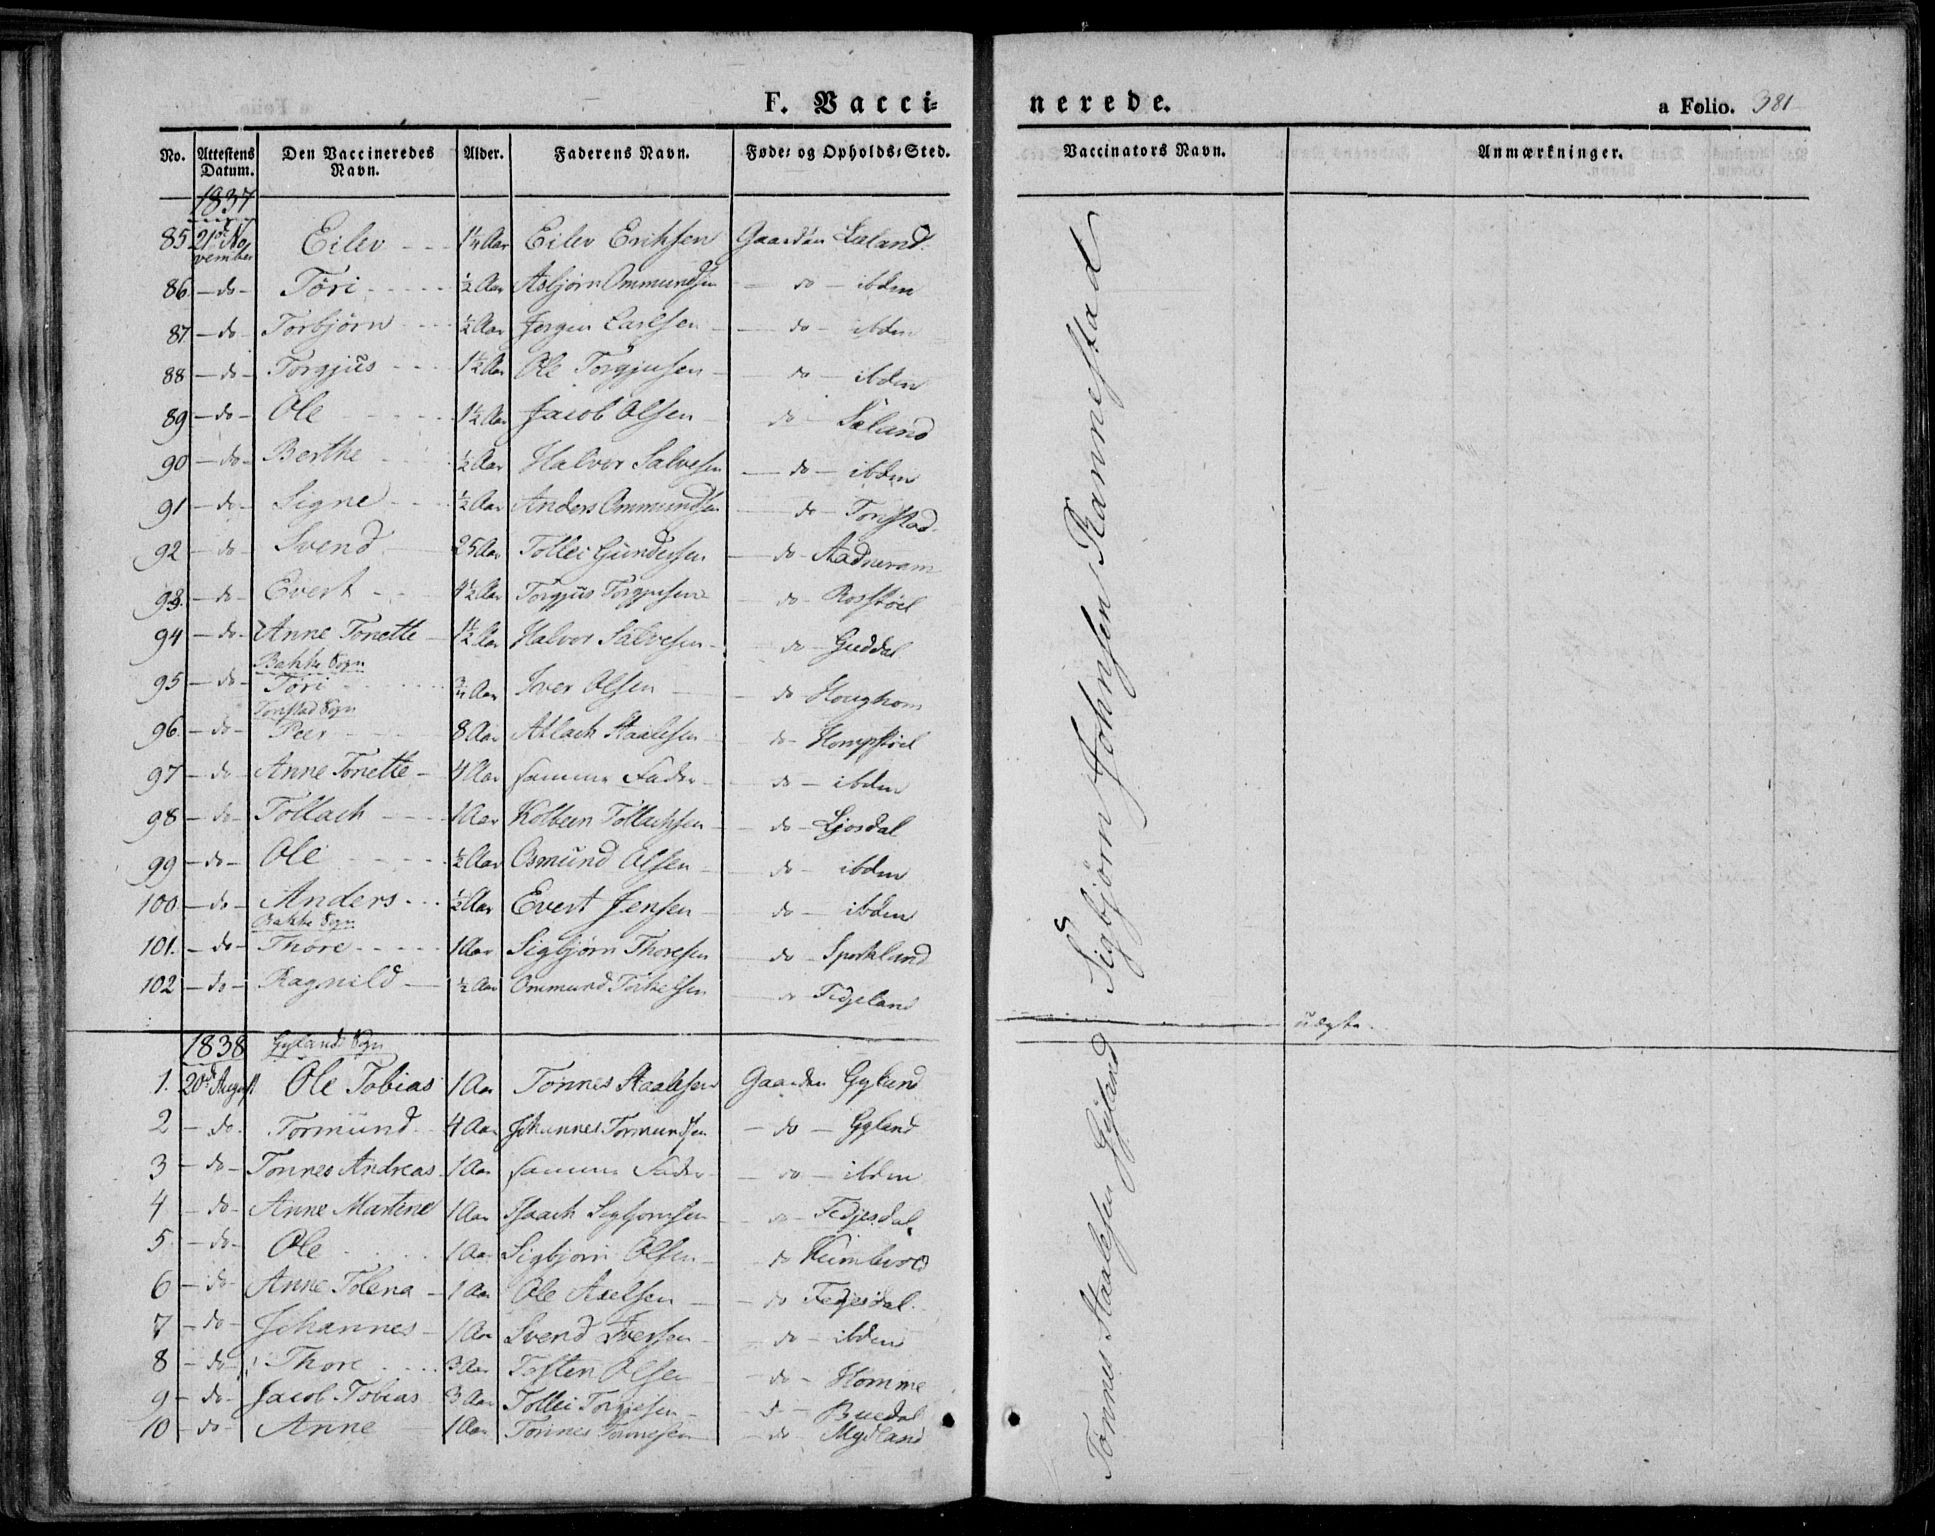 F. Vacci-
nerede.
a Folio. 381
No. Attestens Datum. Den Vaccineredes Navn. Alder. Faderens Navn. Føde- og Opholds-Sted. Vaccinators Navn. Anmærkninger.
1837
85 21de November Eilev 1½ Aar Eilev Eriksen Gaarden Læland
86 do Tori ½ Aar Asbjørn Ommundsen do ibden
87 do Torbjørn ½ Aar Jørgen Carlsen do ibden
88 do Torgjus 1½ Aar Ole Torgjusen do ibden
89 do Ole 1½ Aar Jacob Olsen do
90 do Berthe ½ Aar Halvor Salvesen do ibden
91 do Signe ½ Aar Anders Ommundsen do Tonstad
92 do Svend 25 Aar Tollei Gundersen do Aadneram
93. do Evert 1½ Aar Torgjus Torgjusen do Rosstøel
94 do Anne Tonette 1½ Aar Halvor Salvesen do Guddal
Bakke Sogn
95 do Tori ¾ Aar Iver Olsen do Houghom
Tonstad Sogn
96. do Peer 8 Aar Atlach Staalesen do Hompstøel
97 do Anne Tonette 4 Aar samme Fader do ibden
98 do Tollach 1 Aar Kolbeen Tollachsen do Ljosdal
99 do Ole ½ Aar Osmund Olsen do ibden
100 do Anders ½ Aar Evert Jensen do ibden
Bakke Sogn
101. do Thore 1 Aar Sigbjørn Thoresen do Sporkland
102 do Ragnild ½ Aar Ommund Torkelsen do Fidjeland
uægte
Sigbjørn Johnsen Rannestad
1838 Gylands Sogn
1. 20de August Ole Tobias 1 Aar Tønnes Staalesen Gaarden Gyland
2 do Tormund 4 Aar Johannes Tormundsen do Gyland
3 do Tønnes Andreas 1 Aar samme Fader do ibden
4 do Anne Martine 1 Aar Isaach Sigbjørnsen do Fedjesdal
5 do Ole 1 Aar Sigbjørn Olsen do Kumlevold
6 do Anne Tolena 1 Aar Ole Axelsen do Fedjesdal
7 do Johannes 1 Aar Svend Iversen do ibden
8 do Thore 3 Aar Tosten Olsen do Homme
9 do Jacob Tobias 3 Aar Tollei Torgiesen do Buedal
10 do Anne 1 Aar Tønnes Tønnesen do Mydland
Tønnes Staalesen Gyland